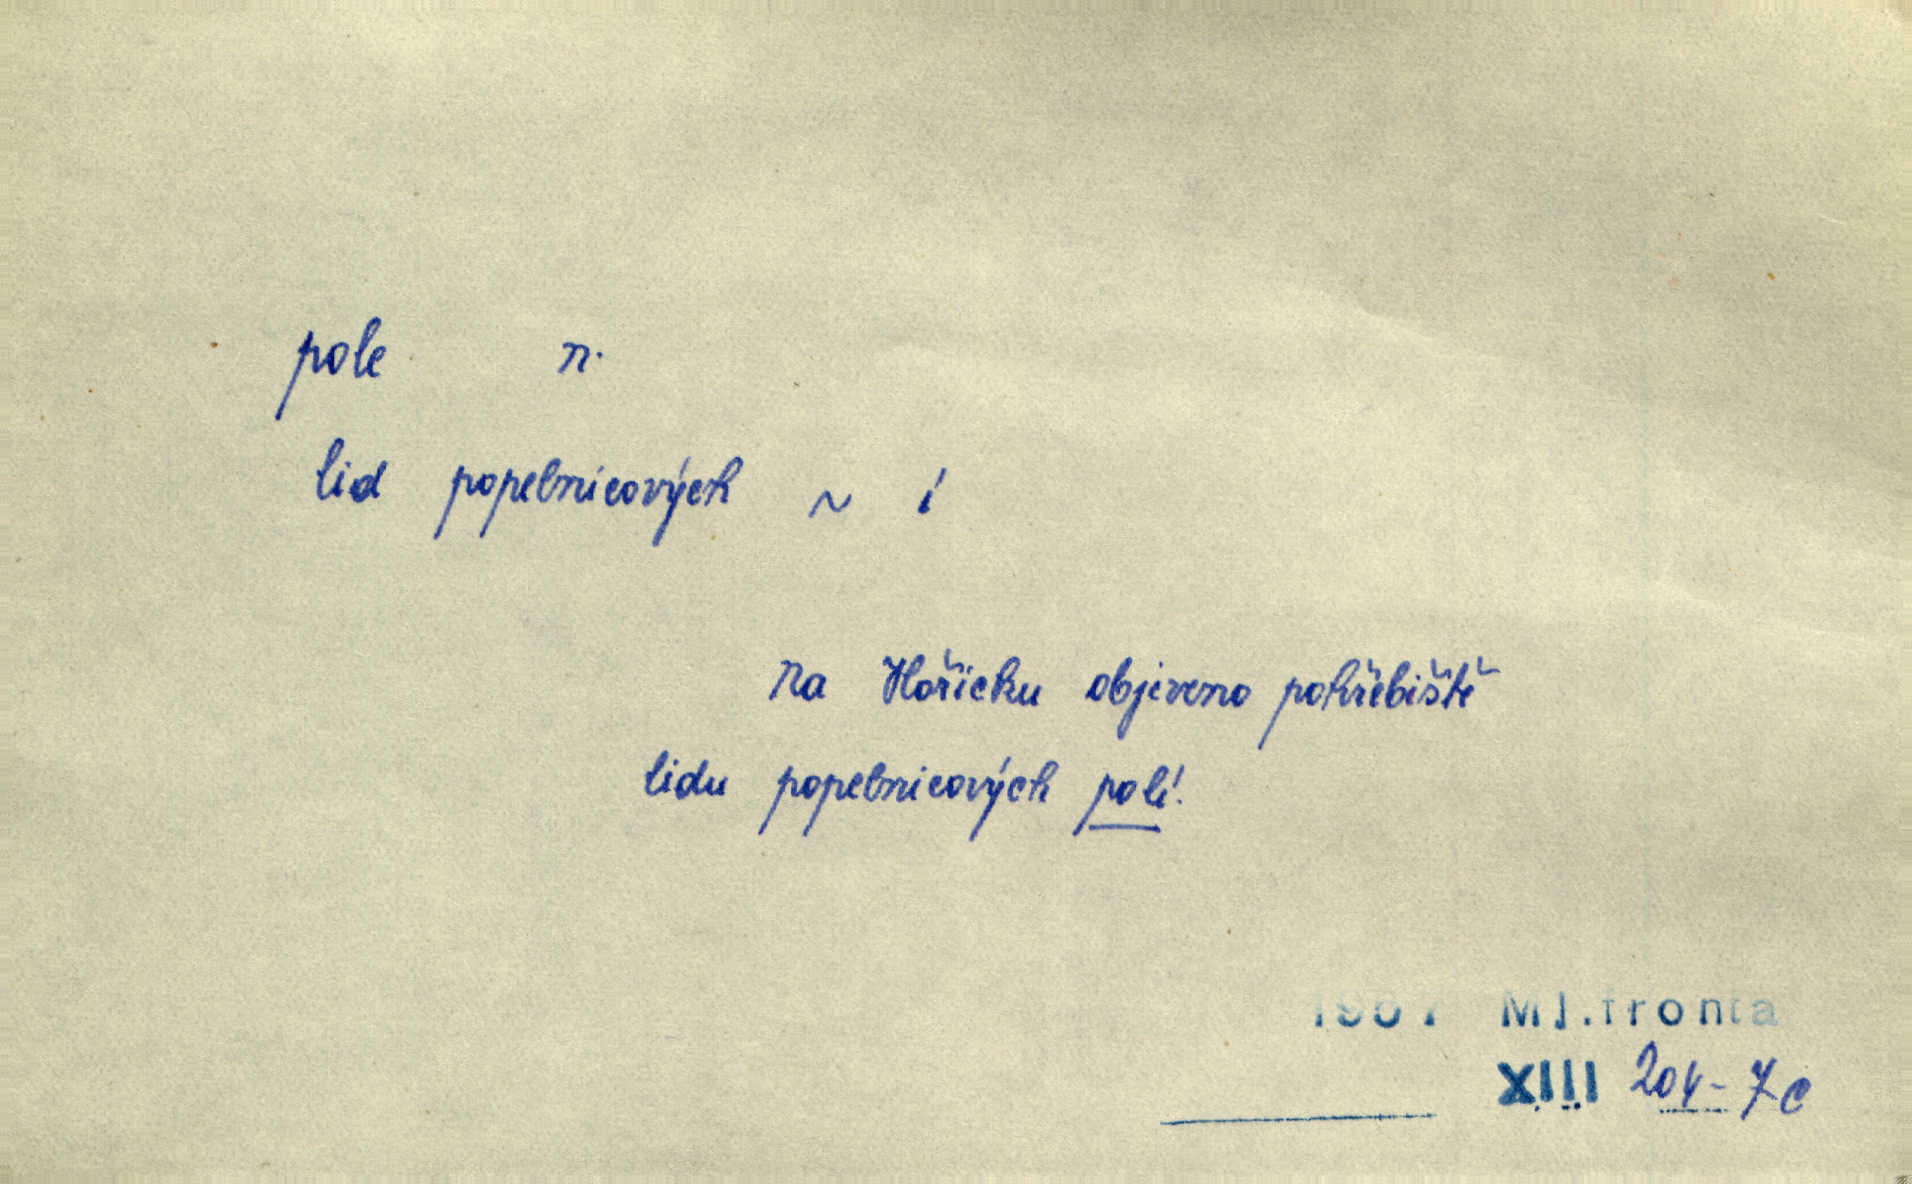 pole n.
lid popelnicových ~ í
Na Hořicku objeveno pohřebiště
lidu popelnicových polí.
Ml.fronta
XIII 204-7c